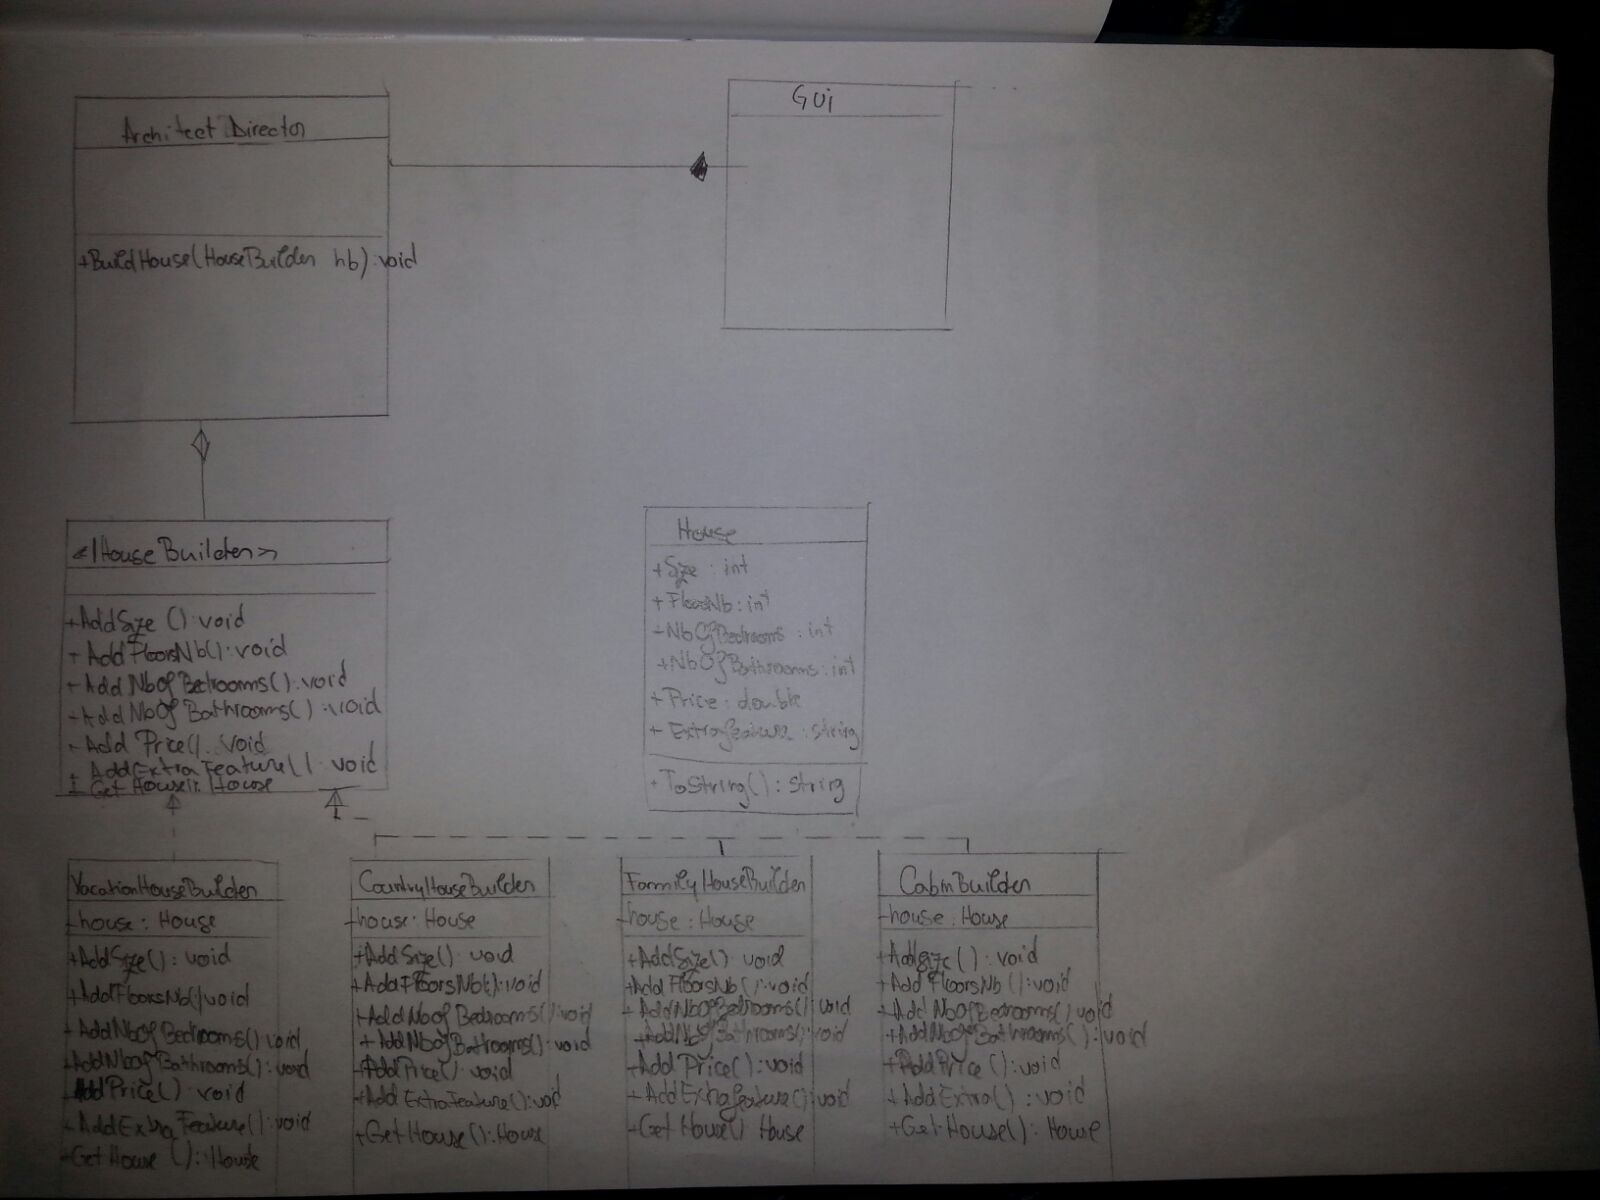 Architect Director
+BuildHouse(HouseBuilder hb):void
Gui
<IHouseBuilder>
+AddSize ():void
+AddFloorsNb():void
+AddNbOfBedrooms():void
+AddNbOfBathrooms():void
+Add Price():void
+AddExtraFeature():void
+GetHouse():House
House
+Size : int
+FloorNb : int
+NbOfBedrooms : int
+NbOfBathrooms : int
+Price : double
+ExtraFeature : string
+ToString() : string
VacationHouseBuilder
-house : House
+AddSize() : void
+AddFloorsNb() void
+AddNbOfBedrooms() void
+AddNbOfBathrooms() : void
AddPrice() void
+AddExtraFeature() : void
+GetHouse () : House
CountryHouseBuilder
+house : House
+AddSize() void
+AddFloorsNb() : void
+AddNbOfBedrooms() : void
+AddNbOfBathrooms() : void
+AddPrice() void
+AddExtraFeature() : void
+GetHouse () : House
FormilyHouseBuilder
-house : House
+AddSize() void
+AddFloorsNb () : void
+AddNbOfBedrooms() void
+AddNbOfBathrooms() void
+Add Price() : void
+AddExtraFeature() void
+GetHouse() House
CabinBuilder
-house : House
+AddSize () : void
+Add FloorsNb () : void
+Add NbOfBedrooms() void
+AddNbOfBathrooms() : void
+AddPrice () : void
+AddExtra() : void
+GetHouse() : House